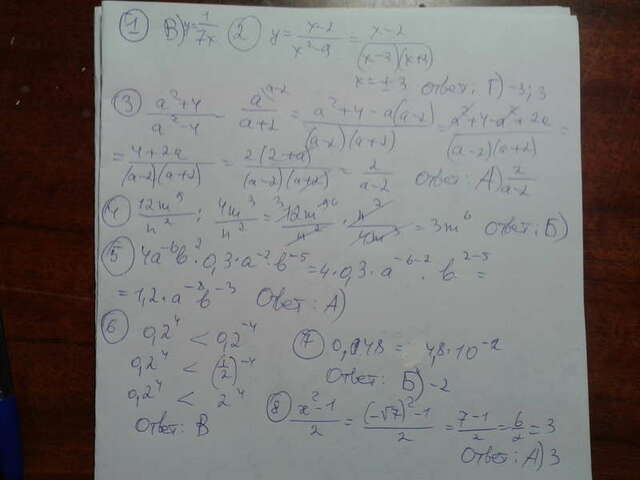 ① В) y = 1/7x ② y = (x-2)/(x²-9) = (x-2)/((x-3)(x+3))
x = ±3 Ответ: Г) -3; 3
③ (a²+4)/(a²-4) - a^(a-2)/(a+2) = (a²+4-a(a-2))/((a-2)(a+2)) = (a²+4-a²+2a)/((a-2)(a+2)) =
= (4+2a)/((a-2)(a+2)) = 2(2+a)/((a-2)(a+2)) = 2/(a-2) Ответ: А) 2/(a-2)
④ 12m⁹/n² : 4m³/n² = 12m⁹/n² · n²/4m³ = 3m⁶ Ответ: Б)
⑤ 4a⁻⁶b² · 0,3·a⁻²·b⁻⁵ = 4·0,3·a⁻⁶⁻² · b²⁻⁵ =
= 1,2·a⁻⁸b⁻³ Ответ: А)
⑥ 0,2⁴ < 0,2⁻⁴
0,2⁴ < (1/2)⁻⁴
0,2⁴ < 2⁴
Ответ: В
⑦ 0,048 = 4,8·10⁻²
Ответ: Б) -2
⑧ (x²-1)/2 = ((-√7)²-1)/2 = (7-1)/2 = 6/2 = 3
Ответ: А) 3